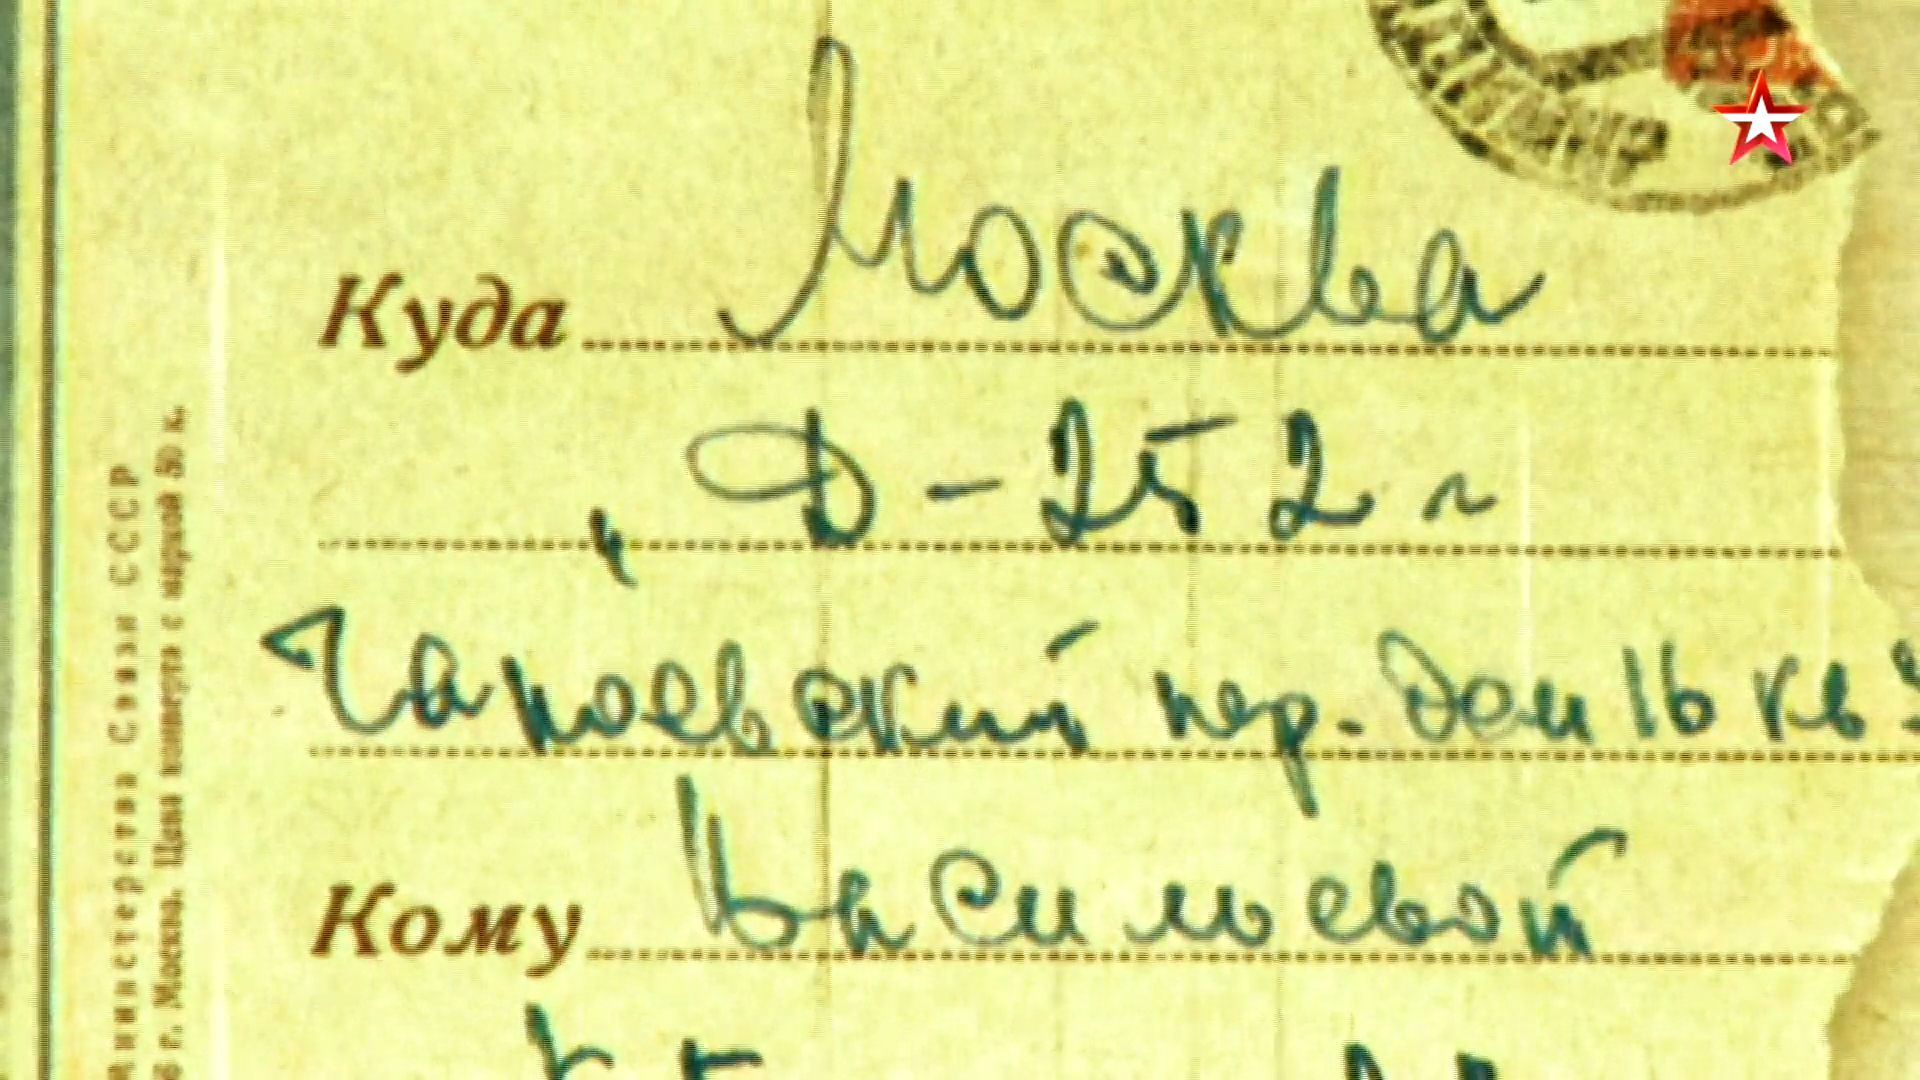 Куда Москва
Д-252
Чапаевский пер. дом 16 кв
Кому Васильевой
Министерства Связи СССР
6 г. Москва. Цена конверта с маркой 50 к.